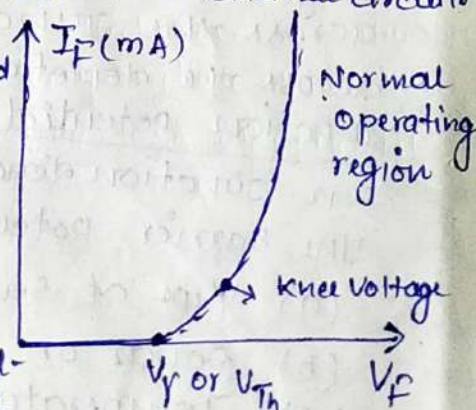 I_F (mA)
Normal
operating
region
Knee Voltage
Vγ or V_Th
V_F